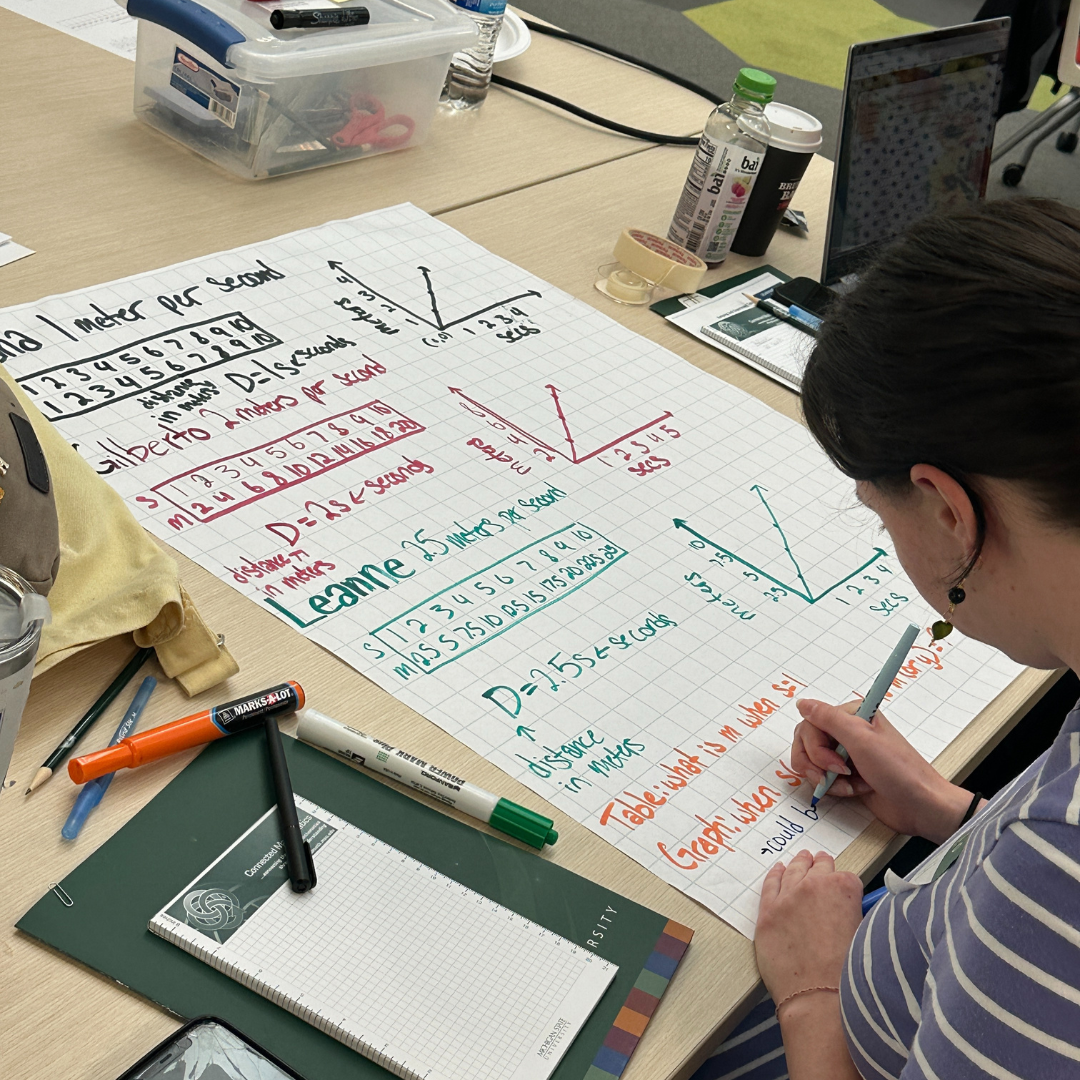 1 meter per second
1 2 3 4 5 6 7 8 9 10
1 2 3 4 5 6 7 8 9 10
distance
in meters
D=1s←seconds
4
3
2
1
meters
(0,0)
1 2 3 4
secs
Gilberto 2 meters per second
S 1 2 3 4 5 6 7 8 9 10
M 2 4 6 8 10 12 14 16 18 20
D=2s←seconds
distance
in meters
8
6
4
2
meters
1 2 3 4 5
secs
Leanne 2.5 meters per second
S 1 2 3 4 5 6 7 8 9 10
M 2.5 5 7.5 10 12.5 15 17.5 20 22.5 25
D=2.5s←seconds
distance
in meters
10
7.5
5
2.5
meters
1 2 3 4
secs
Table: what is m when s=1
Graph: when s
m (or y)=
→could b
MARKS-A-LOT
bai
bai
Connected M
RSITY
MICHIGAN STATE
UNIVERSITY